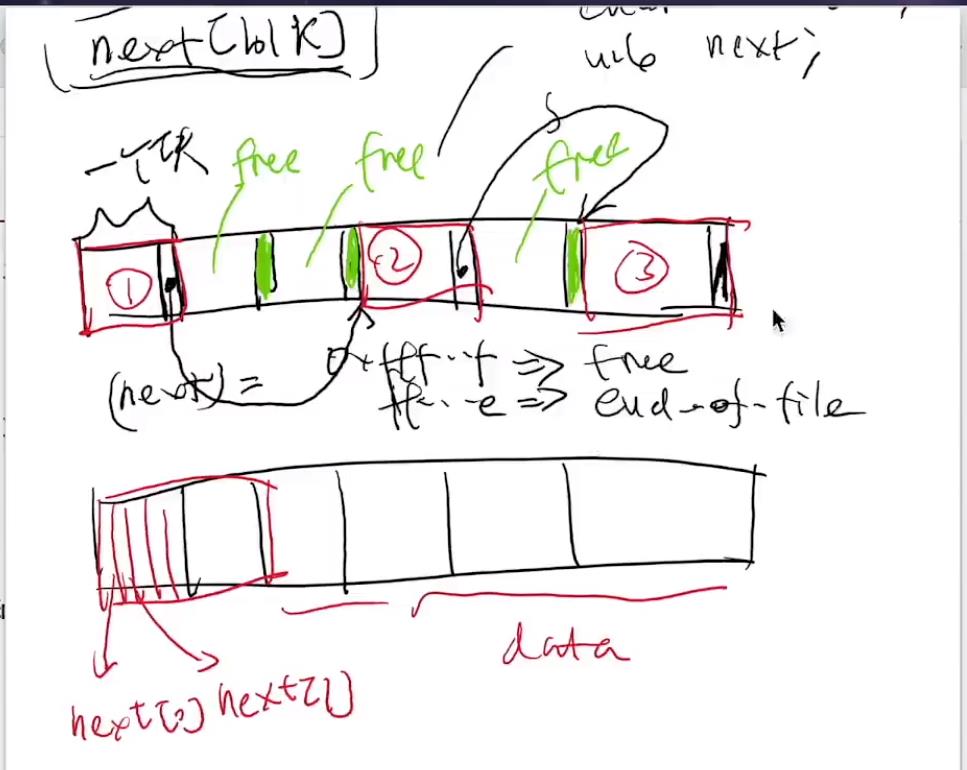 next[blk]
next;
一个块 free free free
① ② ③
0xfff..f => free
(next) = ff...e => end-of-file
data
next[0] next[1]